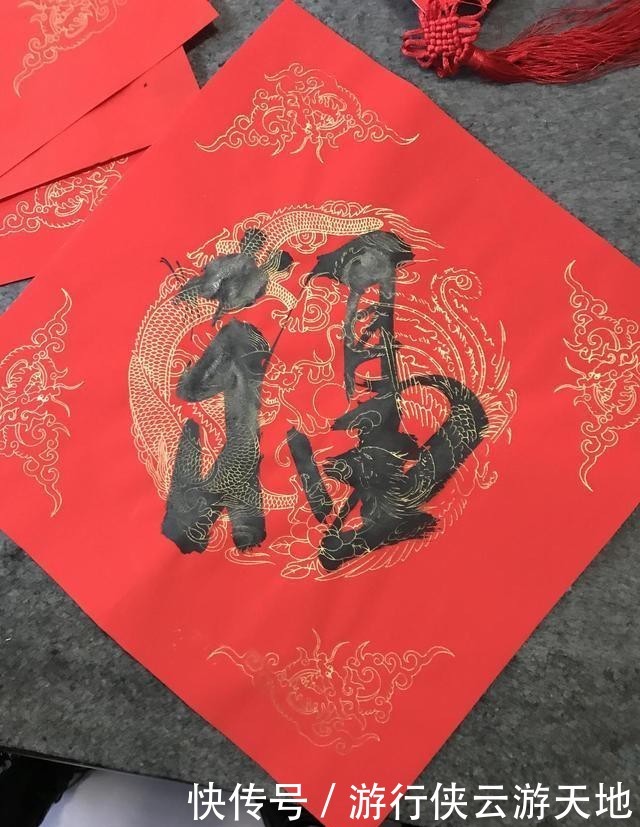 福
快传号 / 游行侠云游天地